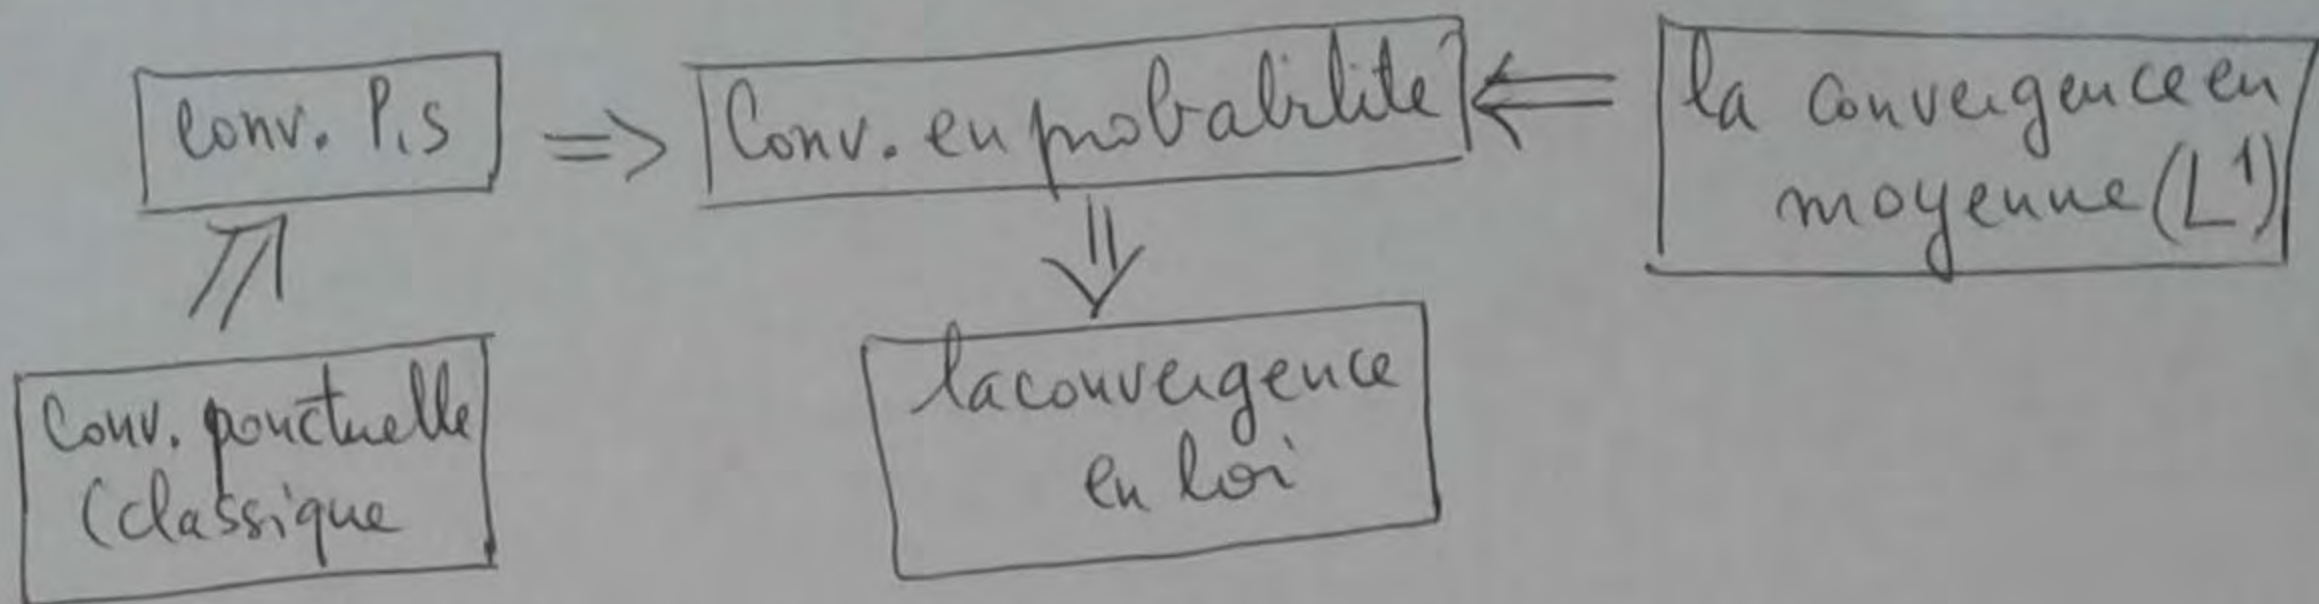 Conv. P.S => Conv. en probabilité <= la convergence en
moyenne (L¹)
Conv. ponctuelle
(classique
la convergence
en loi